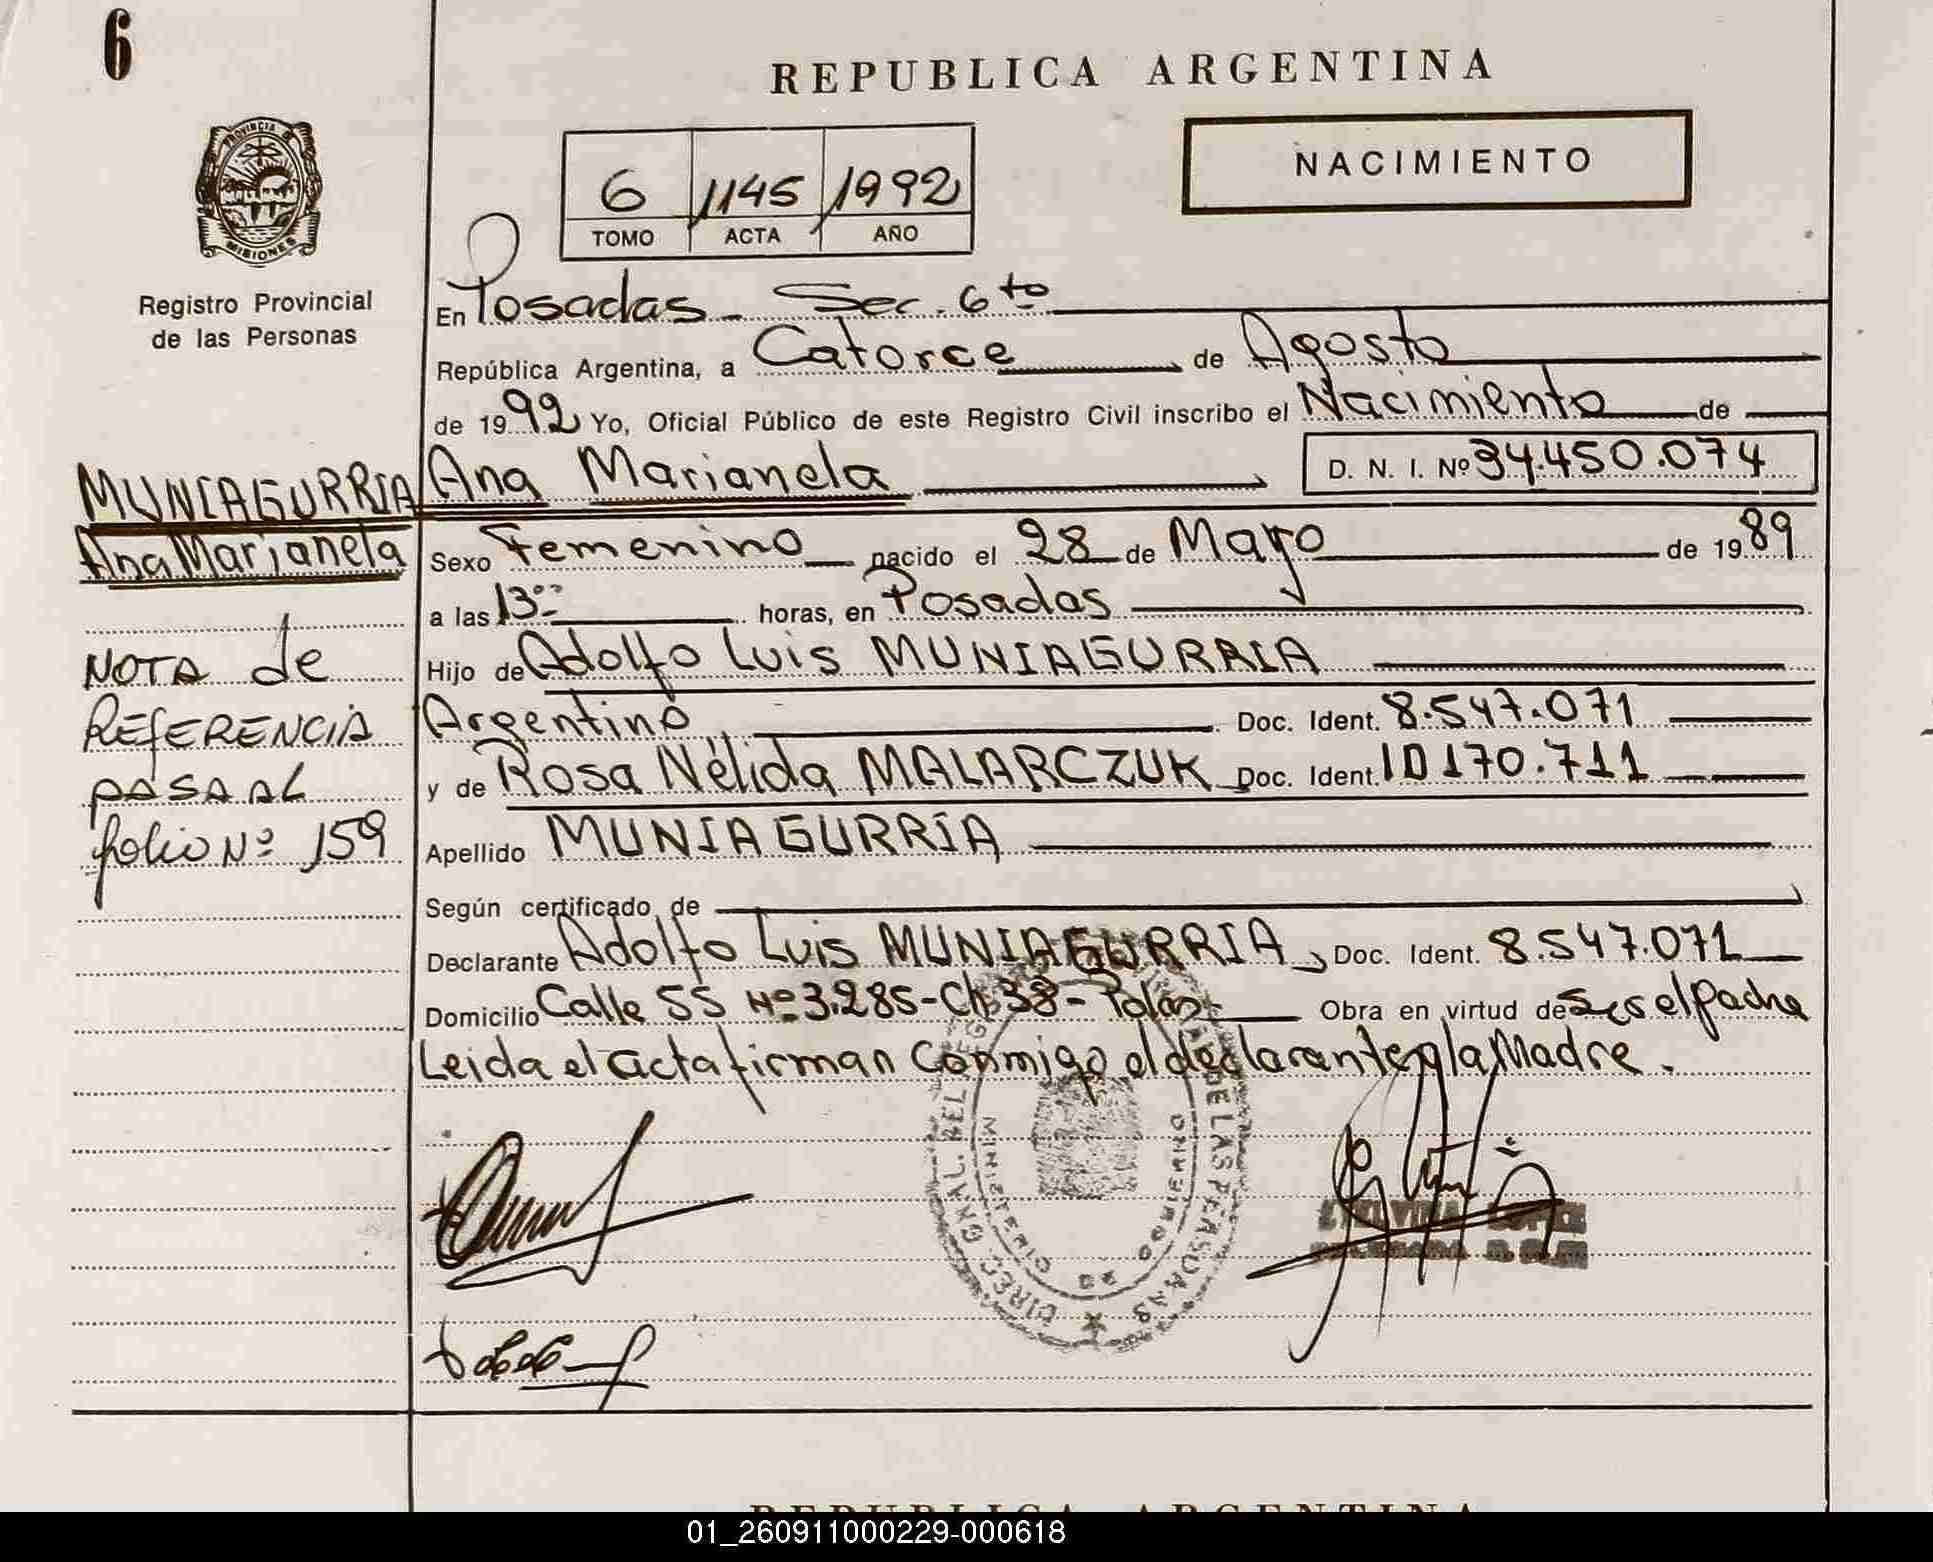 6
REPUBLICA ARGENTINA
NACIMIENTO
6 1145 1992
TOMO ACTA AÑO
PROVINCIA DE MISIONES
Registro Provincial
de las Personas
En Posadas - Sec. 6to
República Argentina, a Catorce de Agosto
de 1992 Yo, Oficial Público de este Registro Civil inscribo el Nacimiento de
MUNIAGURRIA Ana Marianela D. N. I. Nº 34.450.074
Ana Marianela
Sexo Femenino nacido el 28 de Mayo de 1989
a las 13 horas, en Posadas
NOTA de
REFERENCIA
PASA AL
folio Nº 159
Hijo de Adolfo Luis MUNIAGURRIA
Argentino Doc. Ident. 8.547.071
y de Rosa Nélida MALARCZUK Doc. Ident. 10170.711
Apellido MUNIAGURRIA
Según certificado de
Declarante Adolfo Luis MUNIAGURRIA, Doc. Ident. 8.547.071
Domicilio Calle 55 Nº 3.285 - Ch 38 - Pdas - Obra en virtud de ser el Padre
Leida el acta firman conmigo el declarante y la Madre.
DIREC. GRAL. DEL DE LAS PERSONAS
MINISTERIO GOBIERNO
REPUBLICA ARGENTINA
01_260911000229-000618